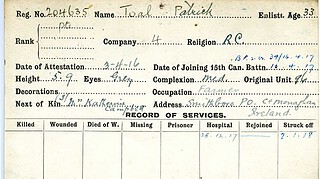 Reg. No. 204635 Name Toal Patrick Enlistt. Age 33
Rank Pte Company 4 Religion R.C.
Date of Attestation 3-11-16 Date of Joining 15th Can. Battn. 12.4.17
Height 5.9 Eyes Grey Complexion Med. Original Unit 96
Decorations Occupation Farmer
Next of Kin Address Smithboro P.O. Co Monaghan
Ireland
RECORD OF SERVICES.
Killed Wounded Died of W. Missing Prisoner Hospital Rejoined Struck off